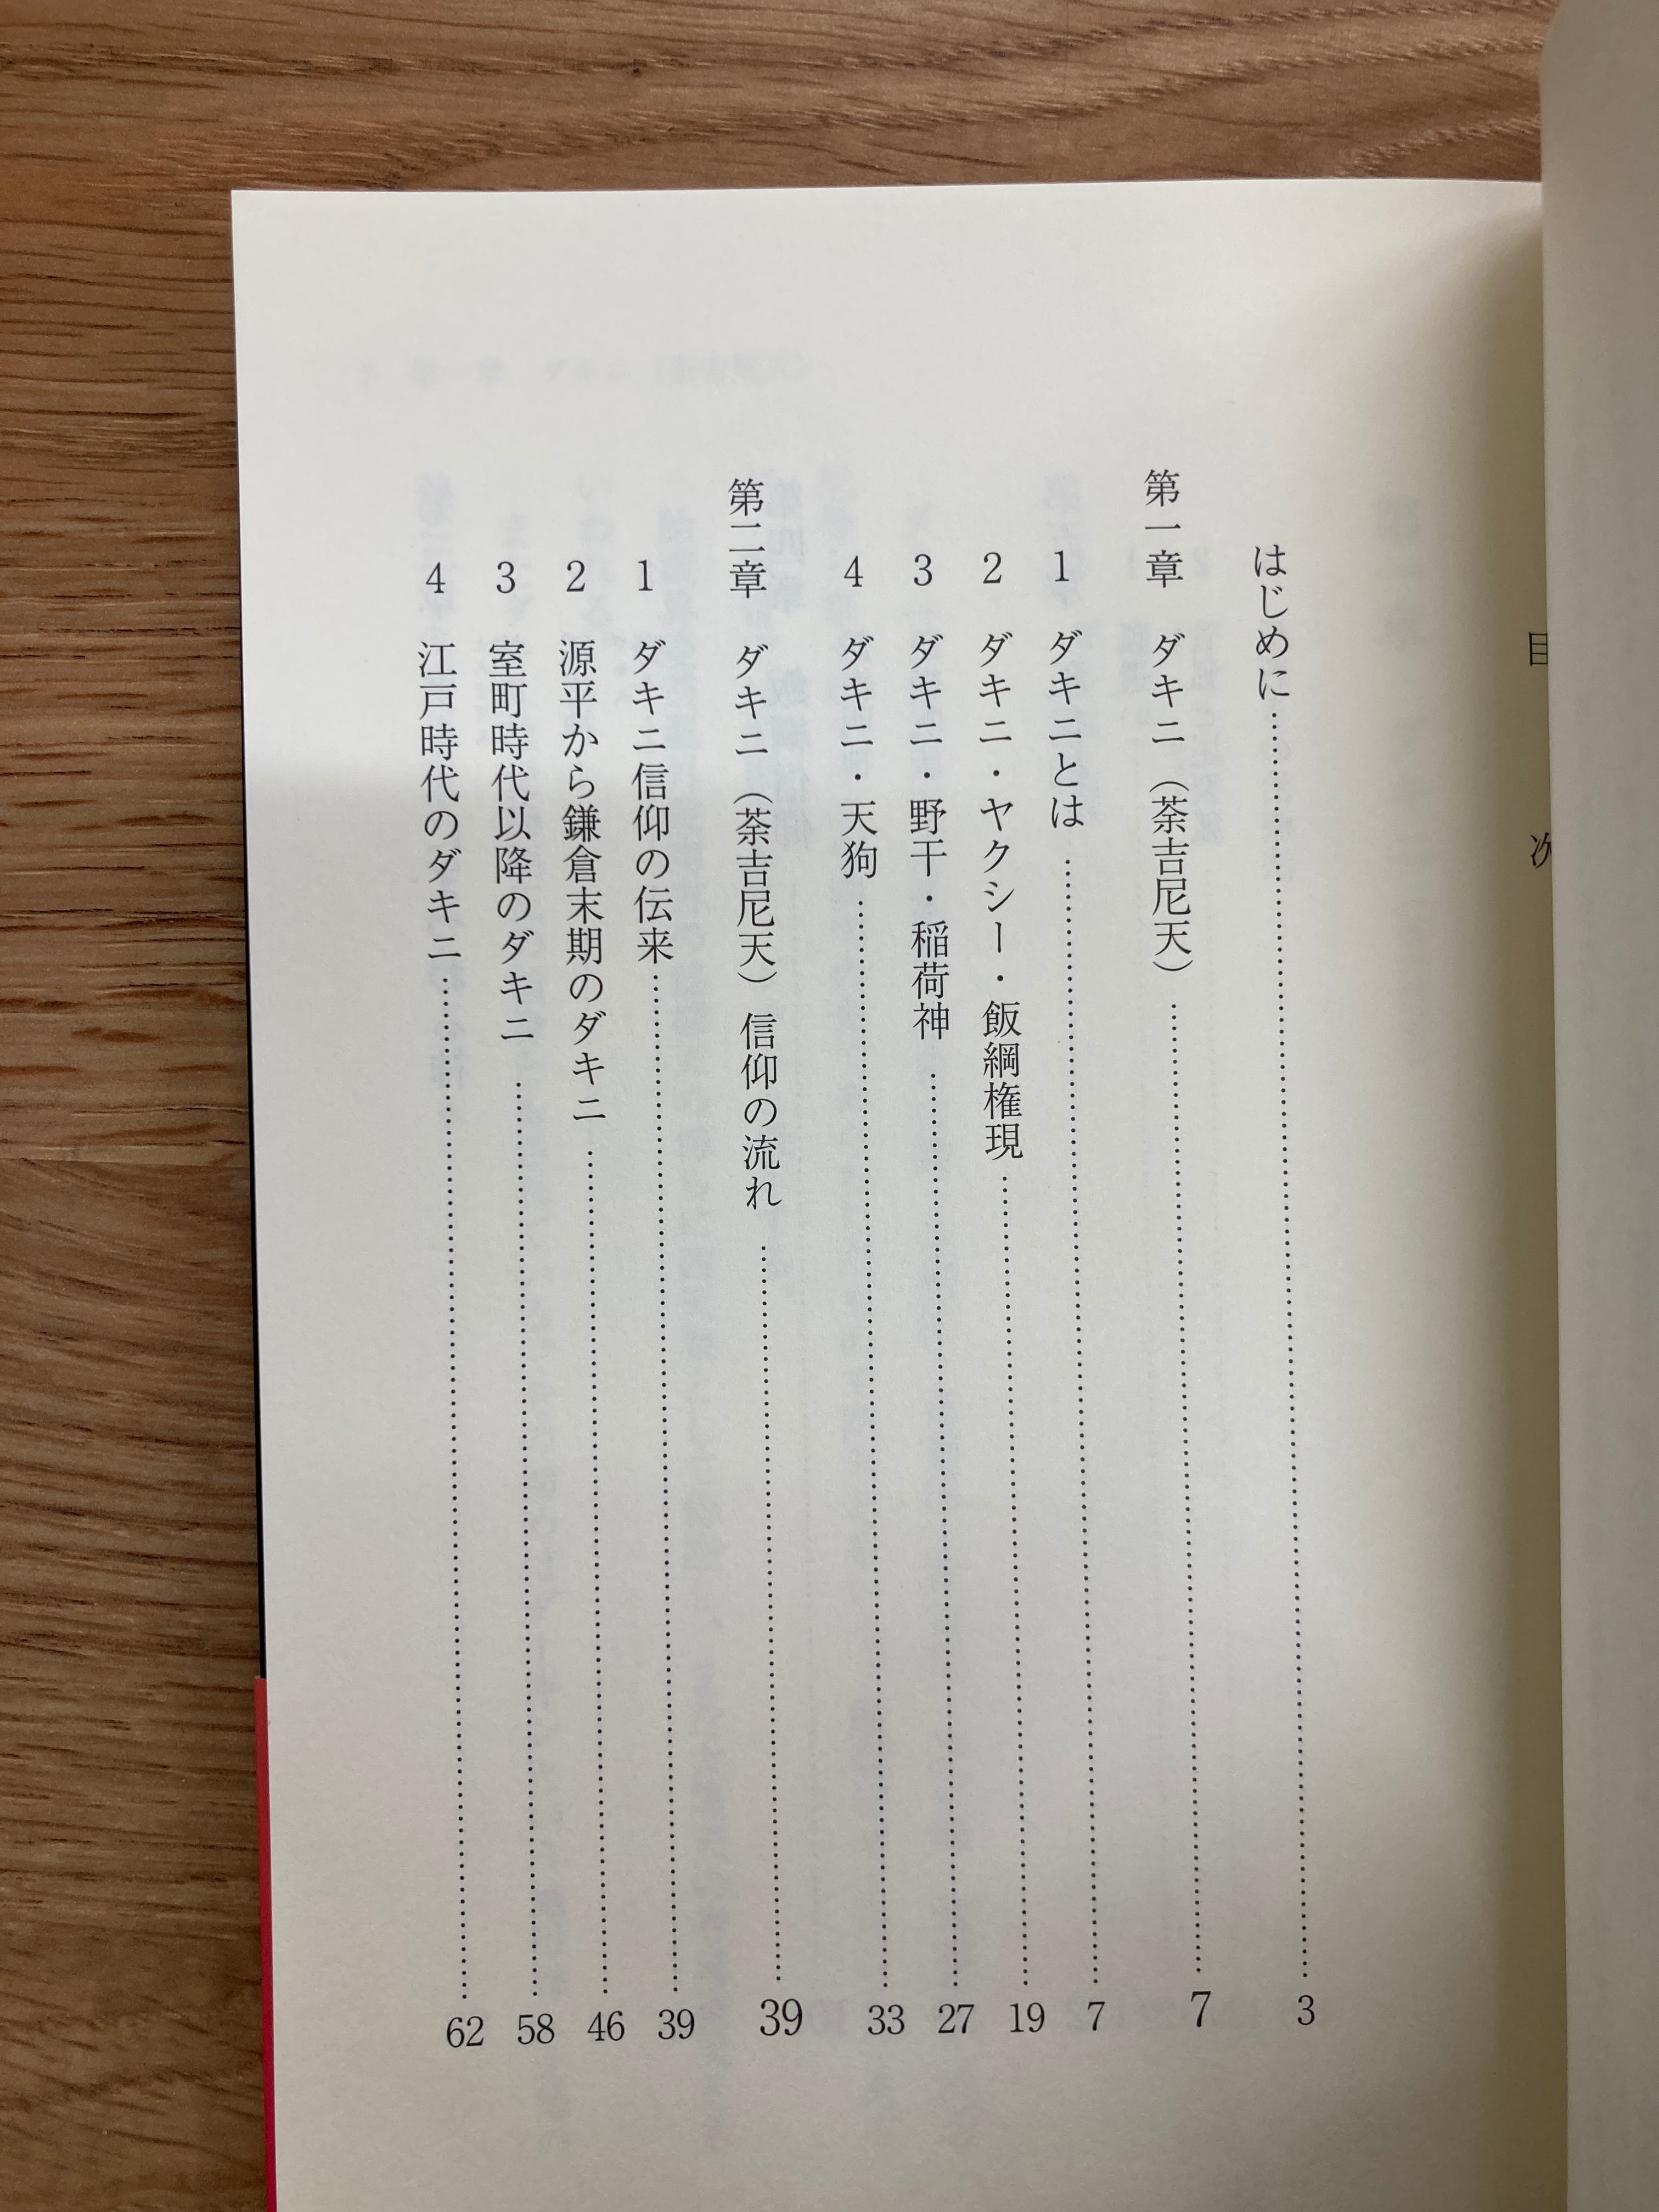 目次
はじめに……3
第一章 ダキニ(荼吉尼天)……7
1 ダキニとは……7
2 ダキニ・ヤクシー・飯綱権現……19
3 ダキニ・野干・稲荷神……27
4 ダキニ・天狗……33
第二章 ダキニ(荼吉尼天)信仰の流れ……39
1 ダキニ信仰の伝来……39
2 源平から鎌倉末期のダキニ……46
3 室町時代以降のダキニ……58
4 江戸時代のダキニ……62